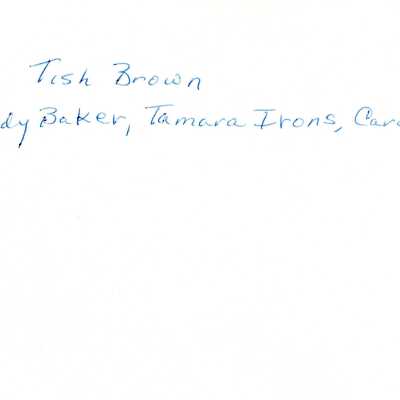 Tish Brown
dy Baker, Tamara Irons, Car